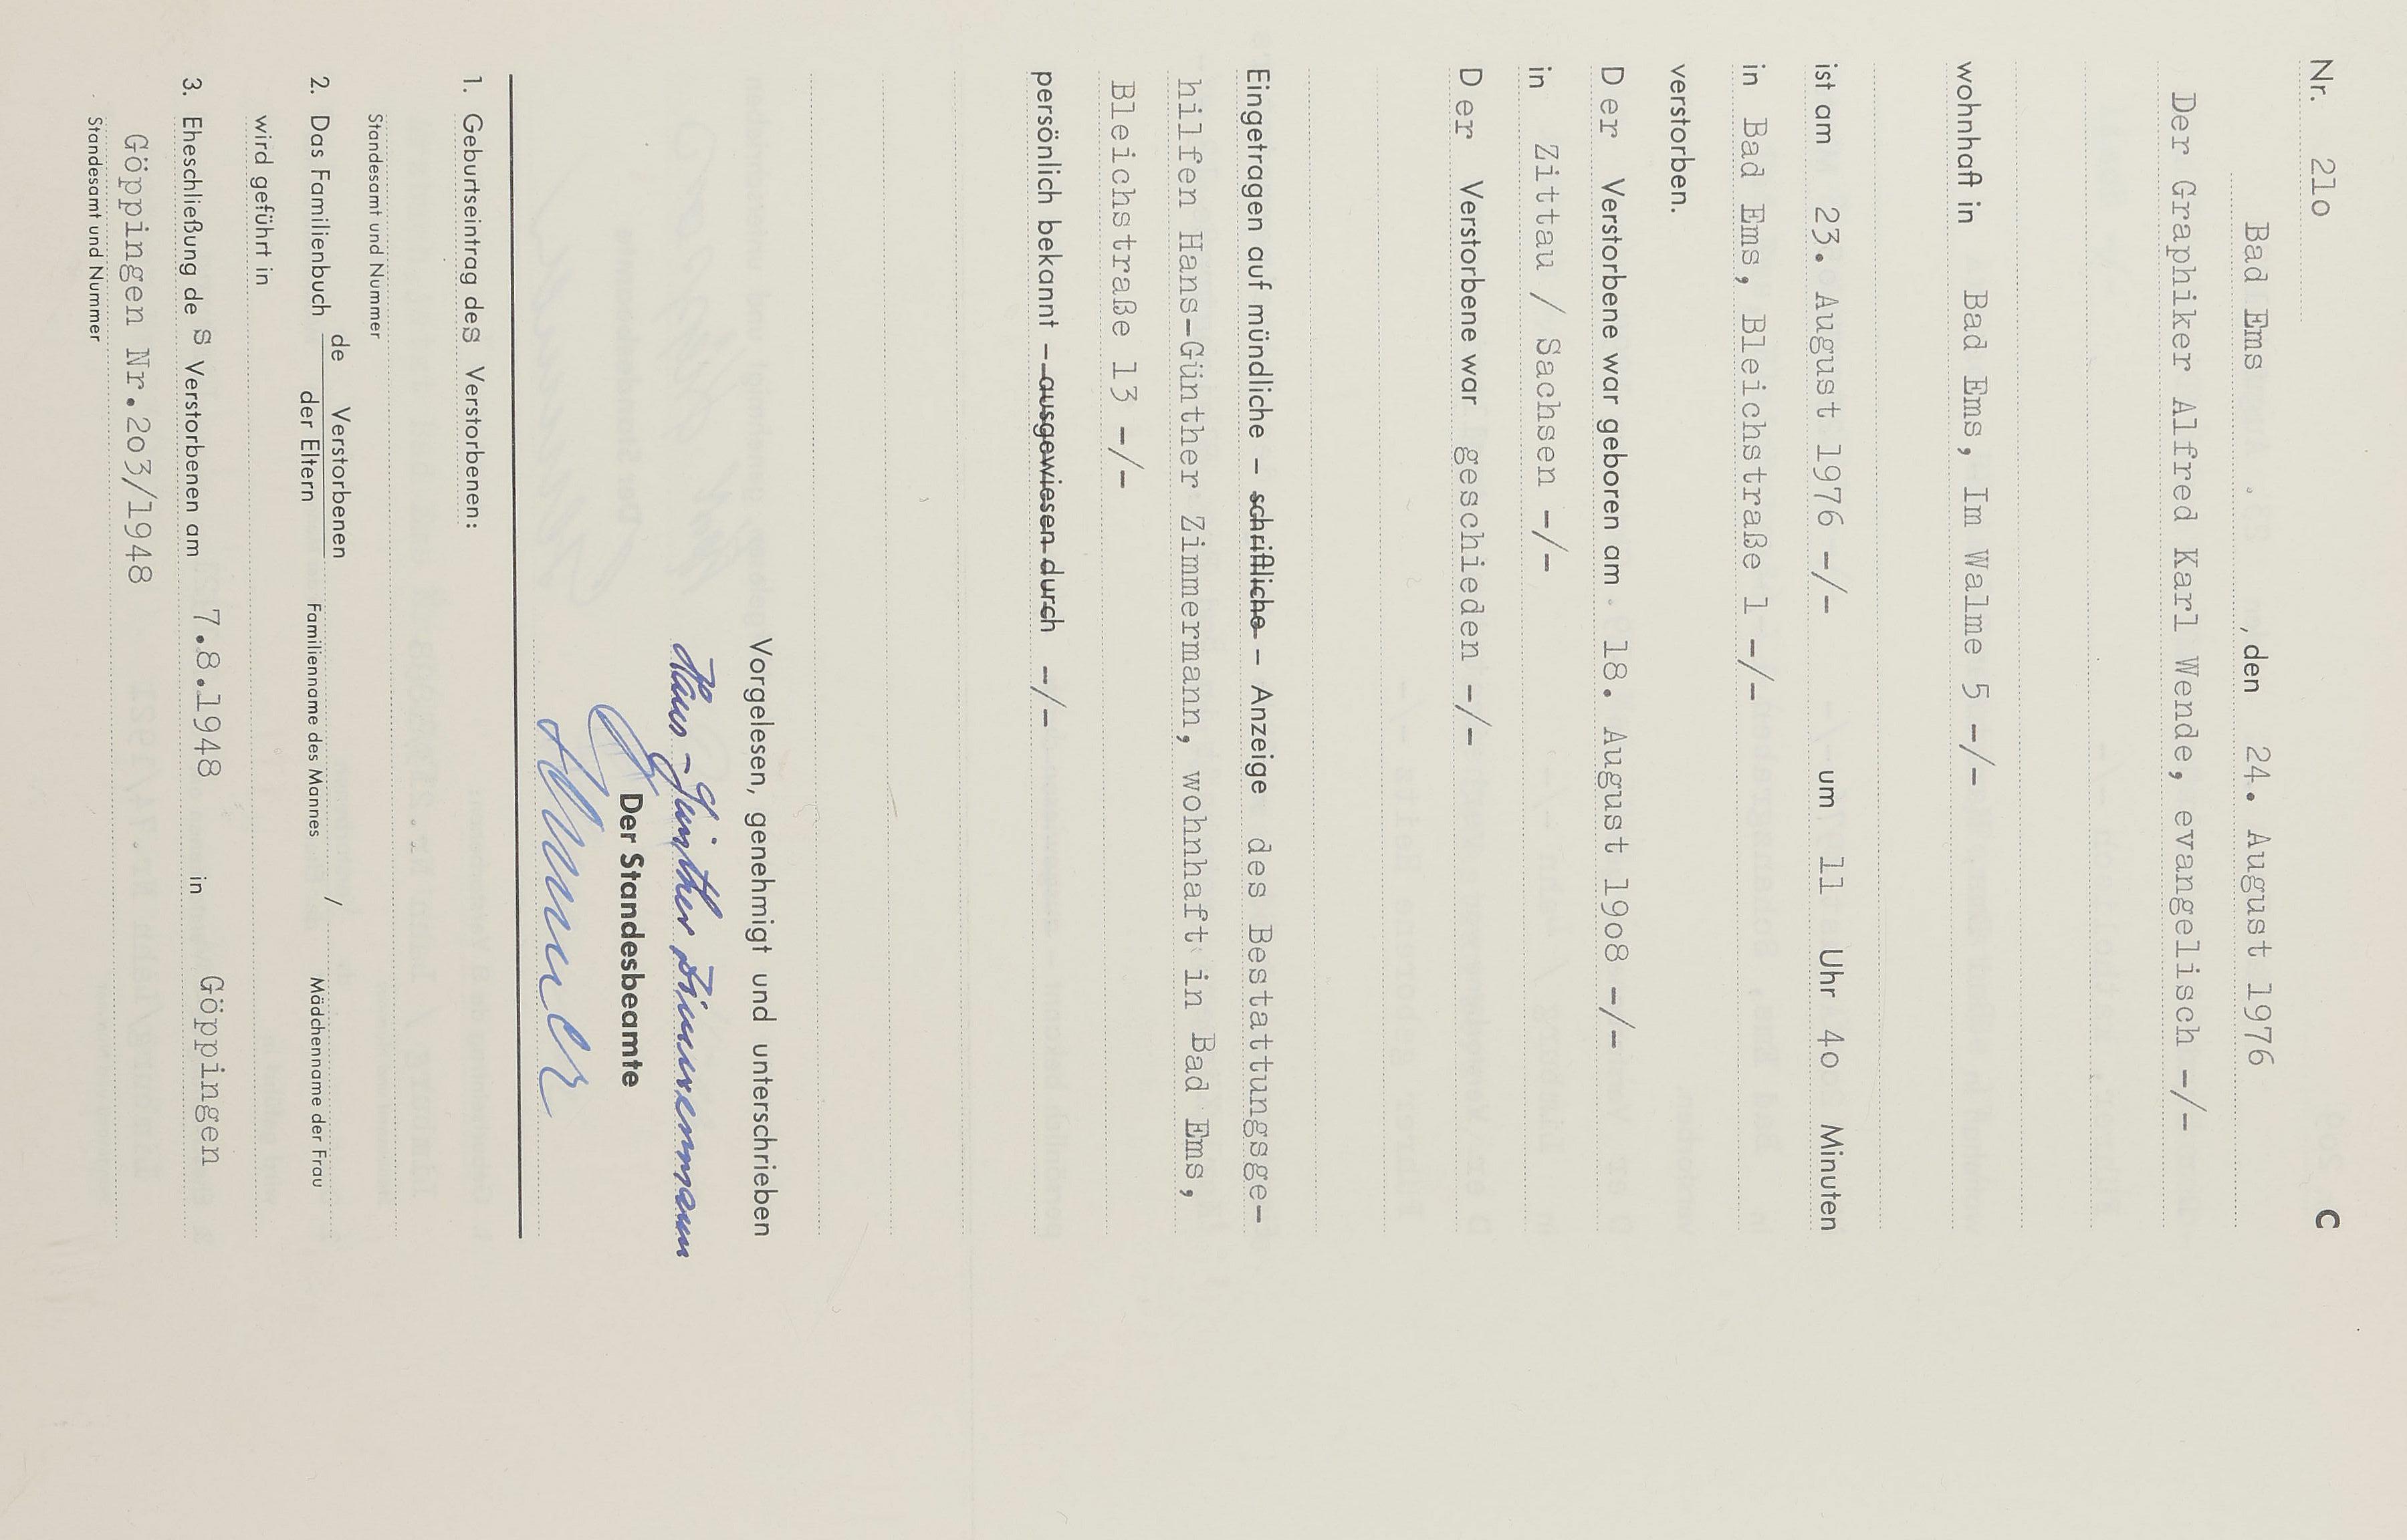 Nr. 21o C
Bad Ems, den 24. August 1976
Der Graphiker Alfred Karl Wende, evangelisch -/-
wohnhaft in Bad Ems, Im Walme 5 -/-
ist am 23. August 1976 -/- um 11 Uhr 4o Minuten
in Bad Ems, Bleichstraße 1 -/-
verstorben.
D er Verstorbene war geboren am 18. August 19o8 -/-
in Zittau / Sachsen -/-
D er Verstorbene war geschieden -/-
Eingetragen auf mündliche - schriftliche - Anzeige des Bestattungsge-
hilfen Hans-Günther Zimmermann, wohnhaft in Bad Ems,
Bleichstraße 13 -/-
persönlich bekannt - ausgewiesen durch -/-
Vorgelesen, genehmigt und unterschrieben
Hans-Günther Zimmermann
Der Standesbeamte
1. Geburtseintrag des Verstorbenen:
Standesamt und Nummer
2. Das Familienbuch de Verstorbenen / der Eltern Familienname des Mannes / Mädchenname der Frau
wird geführt in
3. Eheschließung de s Verstorbenen am 7.8.1948 in Göppingen
Göppingen Nr.2o3/1948
Standesamt und Nummer